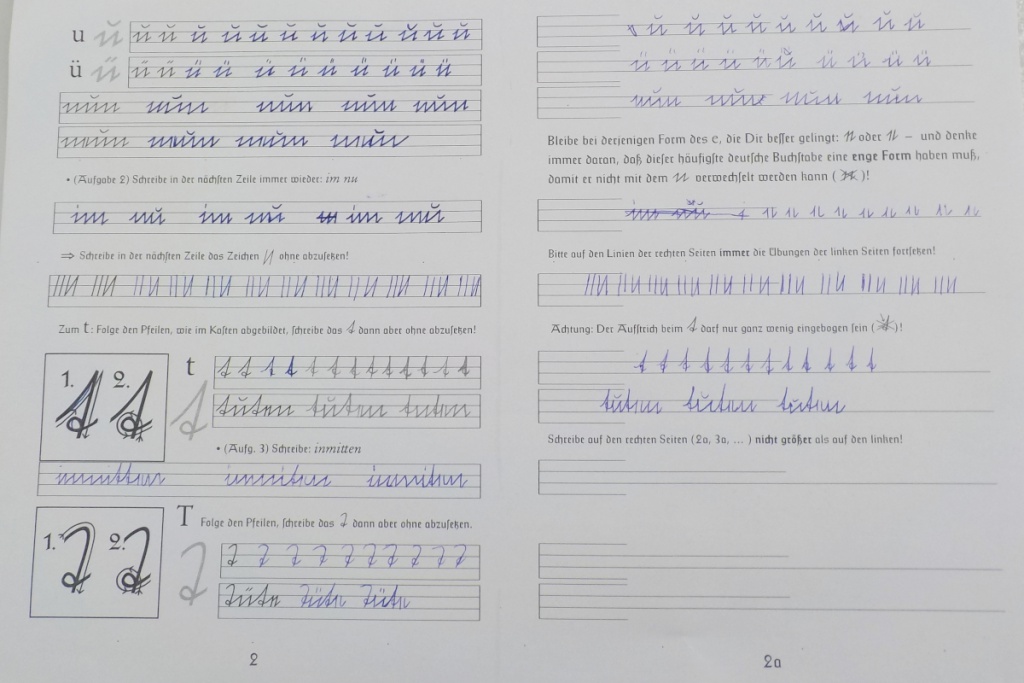 u ŭ ŭ ŭ ŭ ŭ ŭ ŭ ŭ ŭ ŭ ŭ ŭ ŭ
ü ü ü ü ü ü ü ü ü ü ü ü ü
nŭn nŭn nŭn nŭn nŭn
• (Aufgabe 2) Schreibe in der nächſten Zeile immer wieder: im nu
im nŭ im nŭ im nŭ
⇒ Schreibe in der nächſten Zeile das Zeichen ohne abzuſetzen!
Zum t: Folge den Pfeilen, wie im Kaſten abgebildet, ſchreibe das t dann aber ohne abzuſetzen!
1. t 2. t
t t t t t t t t t t t t t t
tŭten tŭten tuten
• (Aufg. 3) Schreibe: inmitten
inmitten inmitten inmitten
1. T 2. T
T Folge den Pfeilen, ſchreibe das T dann aber ohne abzuſetzen.
T T T T T T T T T T T
Tüte Tüte Tüte
2
ŭ ŭ ŭ ŭ ŭ ŭ ŭ ŭ ŭ
ü ü ü ü ü ü ü ü ü ü
nŭn nŭn nŭn nŭn
Bleibe bei derjenigen Form des e, die Dir beſſer gelingt: e oder e – und denke
immer daran, daß dieſer häufigſte deutſche Buchſtabe eine enge Form haben muß,
damit er nicht mit dem n verwechſelt werden kann ( )!
e e e e e e e e e
Bitte auf den Linien der rechten Seiten immer die Übungen der linken Seiten fortſetzen!
Achtung: Der Aufſtrich beim t darf nur ganz wenig eingebogen ſein ( )!
t t t t t t t t t t t
tŭten tŭten tŭten
Schreibe auf den rechten Seiten (2a, 3a, ... ) nicht größer als auf den linken!
2a